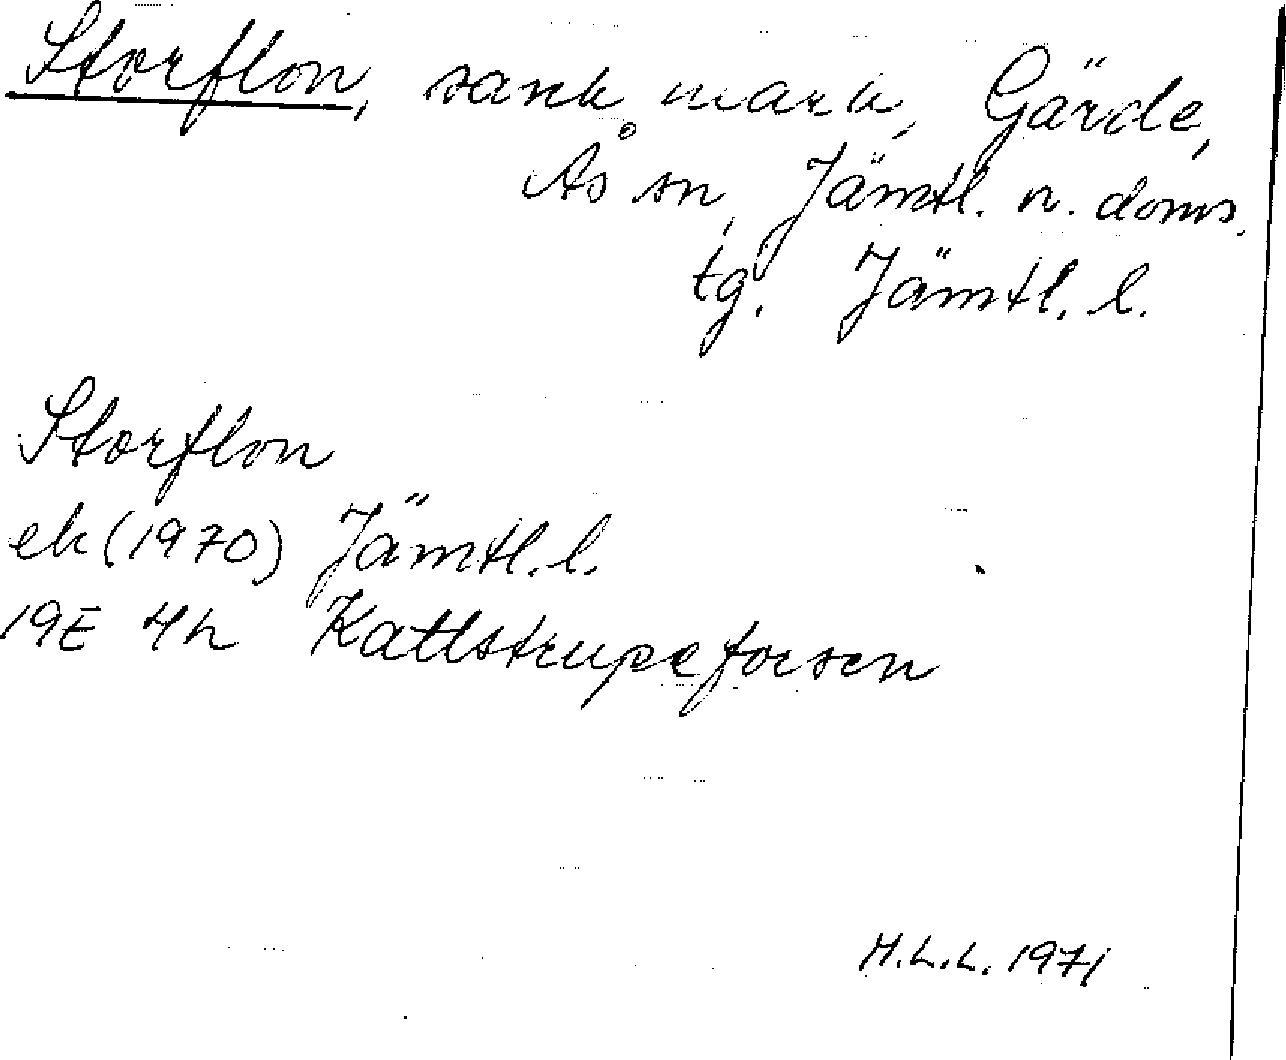 Storflon, sank mark, Gärde,
Ås sn, Jämtl. n. doms.
tg. Jämtl. l.
Storflon
ek (1970) Jämtl. l.
19E 4h Kattstrupeforsen
M.L.L. 1971